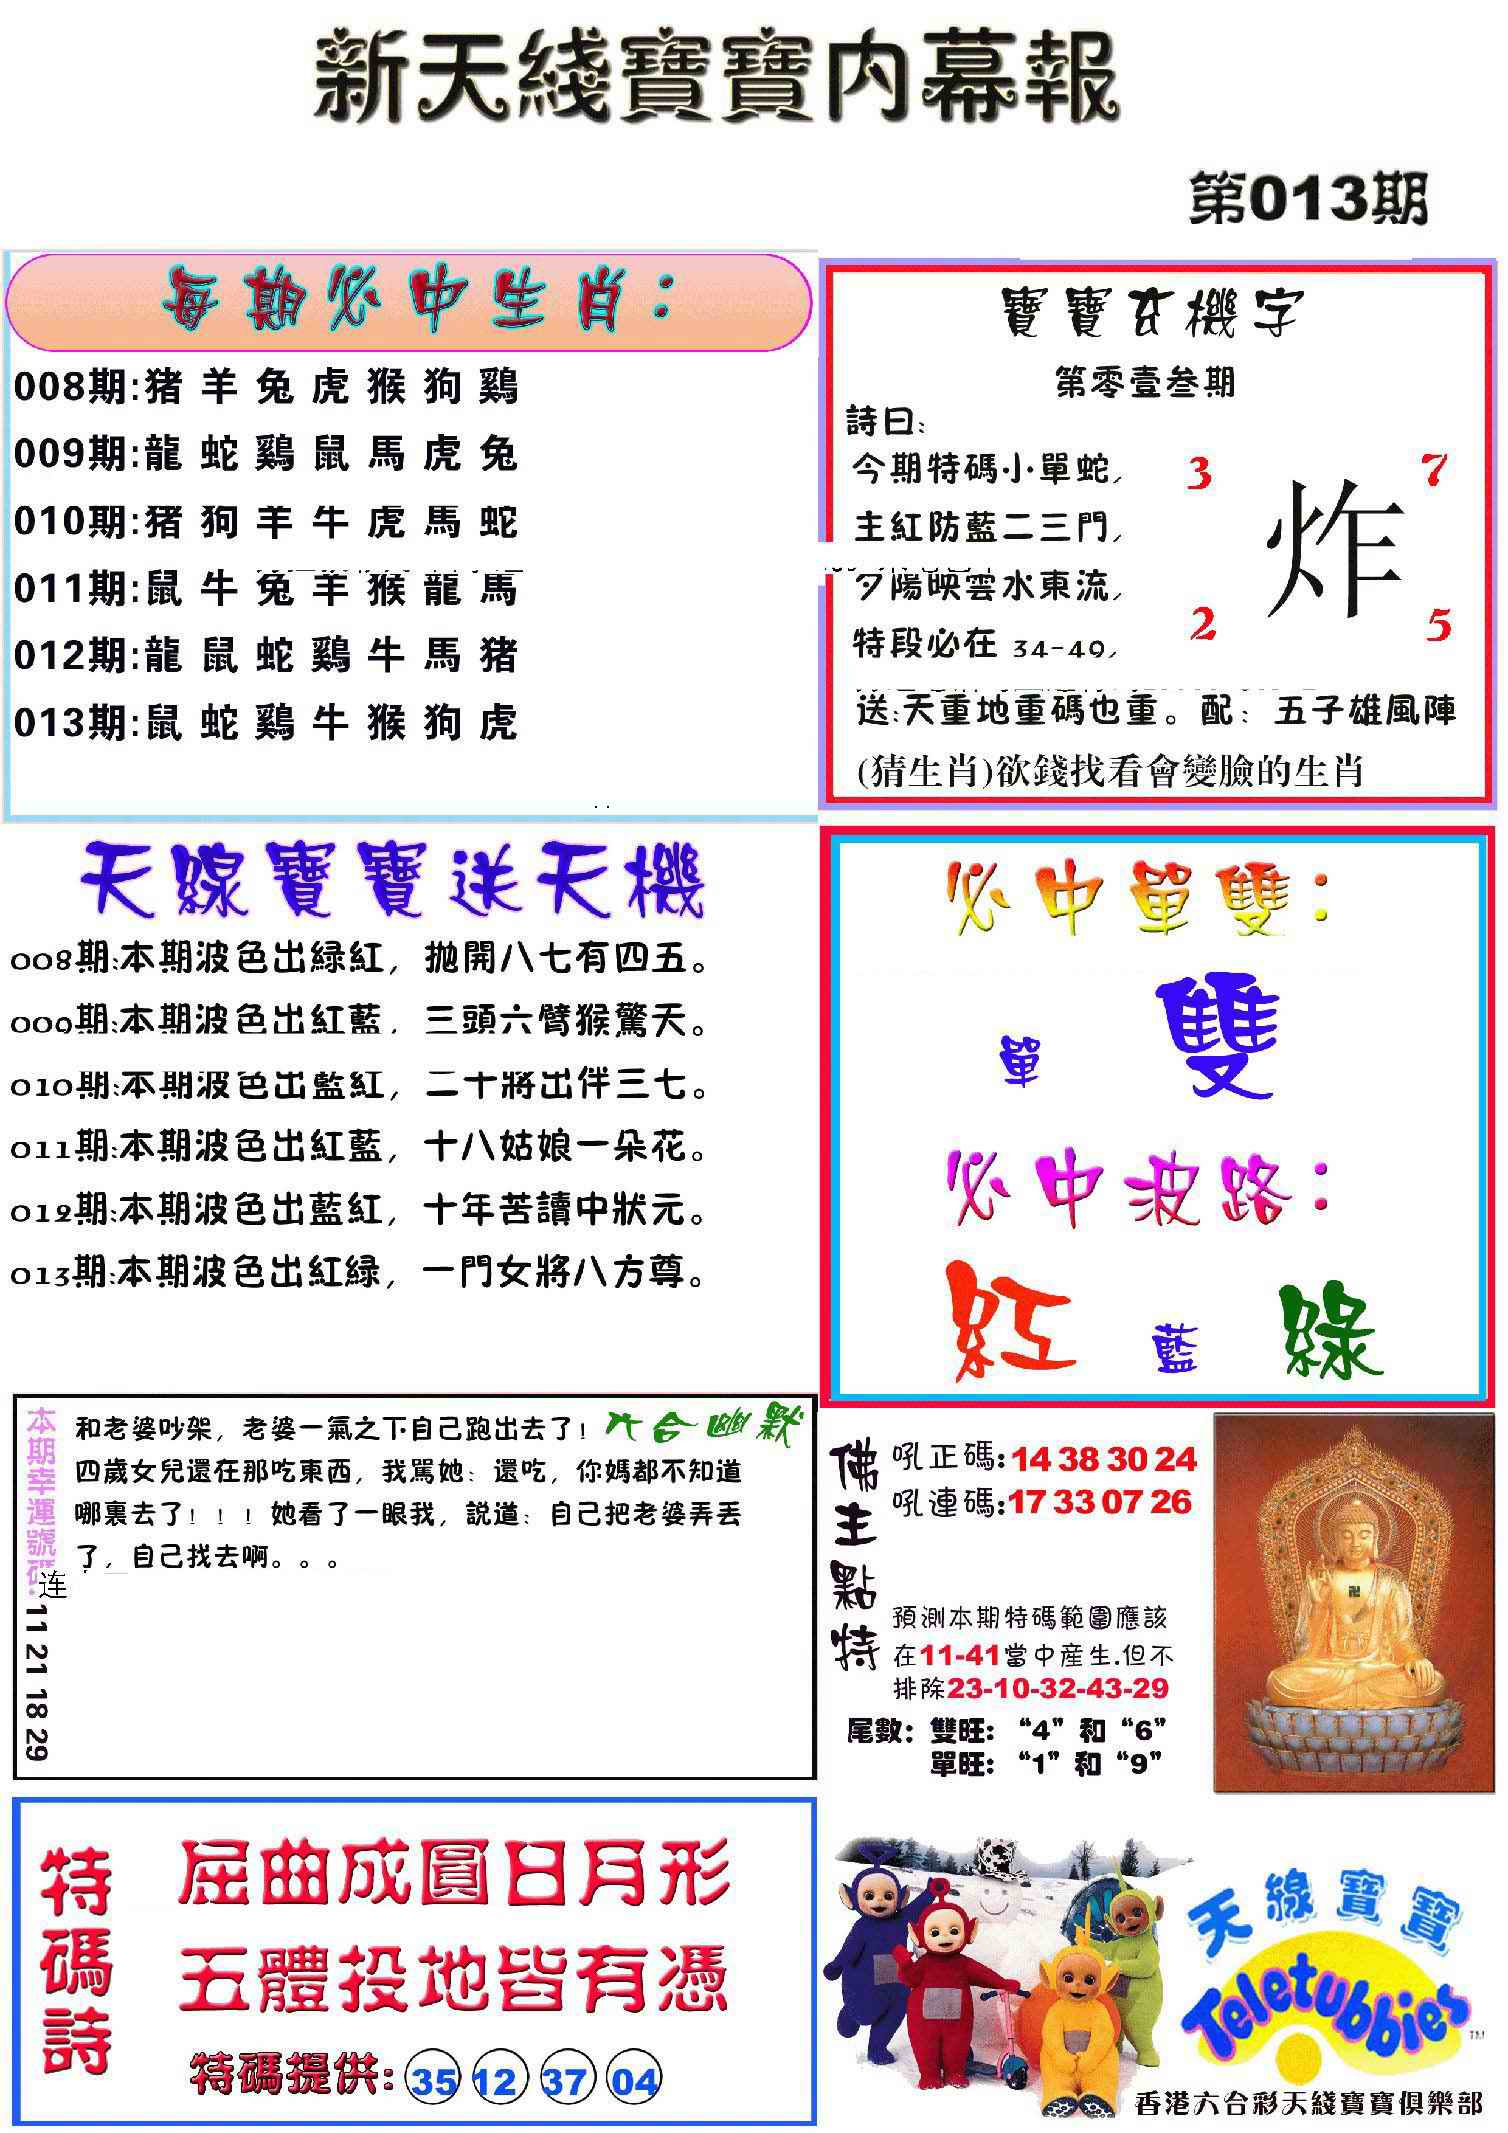 新天綫寶寶内幕報
第013期
每期必中生肖：
008期:猪羊兔虎猴狗鷄
009期:龍蛇鷄鼠馬虎兔
010期:猪狗羊牛虎馬蛇
011期:鼠牛兔羊猴龍馬
012期:龍鼠蛇鷄牛馬猪
013期:鼠蛇鷄牛猴狗虎
寶寶玄機字
第零壹叁期
詩曰:
今期特碼小單蛇,
主紅防藍二三門,
夕陽映雲水東流,
特段必在 34-49,
3 7
炸
2 5
送:天重地重碼也重。配：五子雄風陣
(猜生肖)欲錢找看會變臉的生肖
天線寶寶送天機
008期:本期波色出緑紅，拋開八七有四五。
009期:本期波色出紅藍，三頭六臂猴驚天。
010期:本期波色出藍紅，二十將出伴三七。
011期:本期波色出紅藍，十八姑娘一朵花。
012期:本期波色出藍紅，十年苦讀中狀元。
013期:本期波色出紅緑，一門女將八方尊。
必中單雙：
單 雙
必中波路：
紅 藍 綠
本期幸運號碼:
连
11 21 18 29
六合幽默
和老婆吵架，老婆一氣之下自己跑出去了！
四歲女兒還在那吃東西，我駡她：還吃，你媽都不知道
哪裏去了！！！她看了一眼我，説道：自己把老婆弄丟
了，自己找去啊。。。
佛主點特
吼正碼:14 38 30 24
吼連碼:17 33 07 26
預測本期特碼範圍應該
在11-41當中産生.但不
排除23-10-32-43-29
尾數：雙旺：“4”和“6”
單旺：“1”和“9”
特碼詩
屈曲成圓日月形
五體投地皆有憑
特碼提供: 35 12 37 04
天線寶寶
Teletubbies TM
香港六合彩天綫寶寶俱樂部